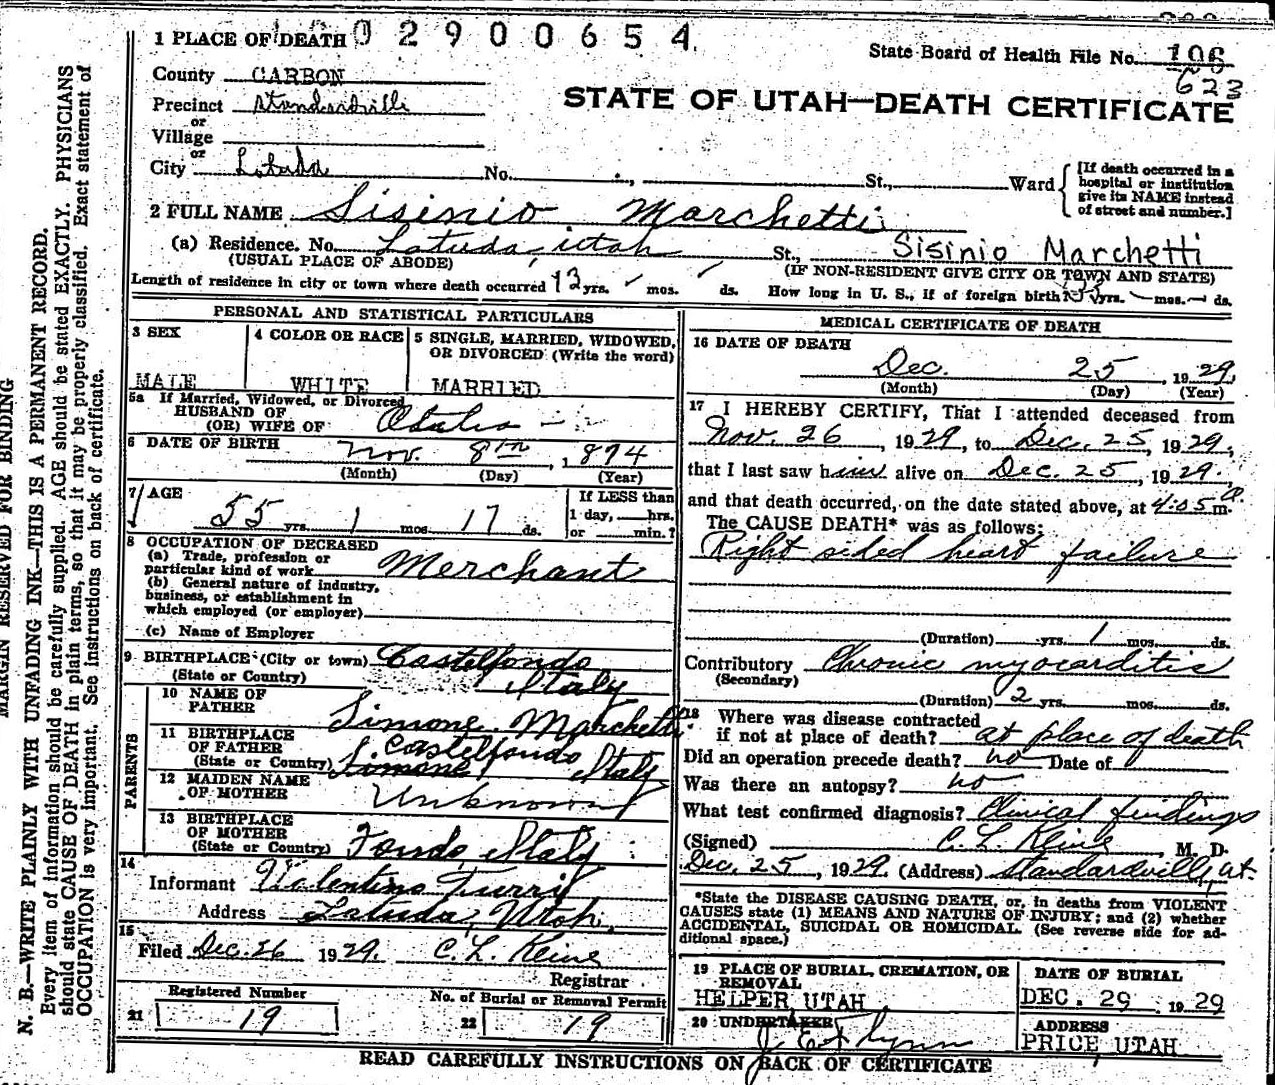 1 PLACE OF DEATH 02900654
State Board of Health File No. 106
623
County CARBON
STATE OF UTAH—DEATH CERTIFICATE
Precinct Standardville
or
Village
or
City Latuda No. St., Ward
[If death occurred in a hospital or institution give its NAME instead of street and number.]
2 FULL NAME Sisinio Marchetti
(a) Residence. No. Latuda, Utah St., Sisinio Marchetti
(USUAL PLACE OF ABODE) (IF NON-RESIDENT GIVE CITY OR TOWN AND STATE)
Length of residence in city or town where death occurred 13 yrs. mos. ds. How long in U. S., if of foreign birth? yrs. mos. ds.
PERSONAL AND STATISTICAL PARTICULARS
3 SEX
MALE
4 COLOR OR RACE
WHITE
5 SINGLE, MARRIED, WIDOWED, OR DIVORCED (Write the word)
MARRIED
5a If Married, Widowed, or Divorced
HUSBAND OF
(OR) WIFE OF
6 DATE OF BIRTH Nov. 8th, 1874
(Month) (Day) (Year)
7 AGE
55 yrs. 1 mos. 17 ds.
If LESS than
1 day, hrs.
or min.?
8 OCCUPATION OF DECEASED
(a) Trade, profession or
particular kind of work Merchant
(b) General nature of industry,
business, or establishment in
which employed (or employer)
(c) Name of Employer
9 BIRTHPLACE (City or town) Castelfondo
(State or Country) Italy
PARENTS
10 NAME OF
FATHER Simone Marchetti
11 BIRTHPLACE
OF FATHER Castelfondo
(State or Country) Simone Italy
12 MAIDEN NAME
OF MOTHER Unknown
13 BIRTHPLACE
OF MOTHER
(State or Country) Fondo, Italy
14
Informant Valentino Turri
Address Latuda, Utah.
15
Filed Dec. 26 1929. C. L. Keine
Registrar
Registered Number
21 19
No. of Burial or Removal Permit
22 19
MEDICAL CERTIFICATE OF DEATH
16 DATE OF DEATH
Dec. 25, 1929.
(Month) (Day) (Year)
17 I HEREBY CERTIFY, That I attended deceased from
Nov. 26, 1929, to Dec. 25 1929,
that I last saw him alive on Dec. 25, 1929.
and that death occurred, on the date stated above, at 4:05 a. m.
The CAUSE DEATH* was as follows:
Right sided heart failure
(Duration) yrs. 1 mos. ds.
Contributory Chronic myocarditis
(Secondary)
(Duration) 2 yrs. mos. ds.
18 Where was disease contracted
if not at place of death? at place of death
Did an operation precede death? no Date of
Was there an autopsy? no
What test confirmed diagnosis? Clinical findings
(Signed) C. L. Keine, M. D.
Dec. 25, 1929. (Address) Standardville, Ut.
*State the DISEASE CAUSING DEATH, or, in deaths from VIOLENT
CAUSES state (1) MEANS AND NATURE OF INJURY; and (2) whether
ACCIDENTAL, SUICIDAL OR HOMICIDAL. (See reverse side for ad-
ditional space.)
19 PLACE OF BURIAL, CREMATION, OR
REMOVAL
HELPER UTAH
DATE OF BURIAL
DEC. 29 1929
20 UNDERTAKER
ADDRESS
PRICE, UTAH
READ CAREFULLY INSTRUCTIONS ON BACK OF CERTIFICATE
MARGIN RESERVED FOR BINDING
N. B.—WRITE PLAINLY WITH UNFADING INK—THIS IS A PERMANENT RECORD.
Every item of information should be carefully supplied. AGE should be stated EXACTLY. PHYSICIANS
should state CAUSE OF DEATH in plain terms, so that it may be properly classified. Exact statement of
OCCUPATION is very important. See instructions on back of certificate.